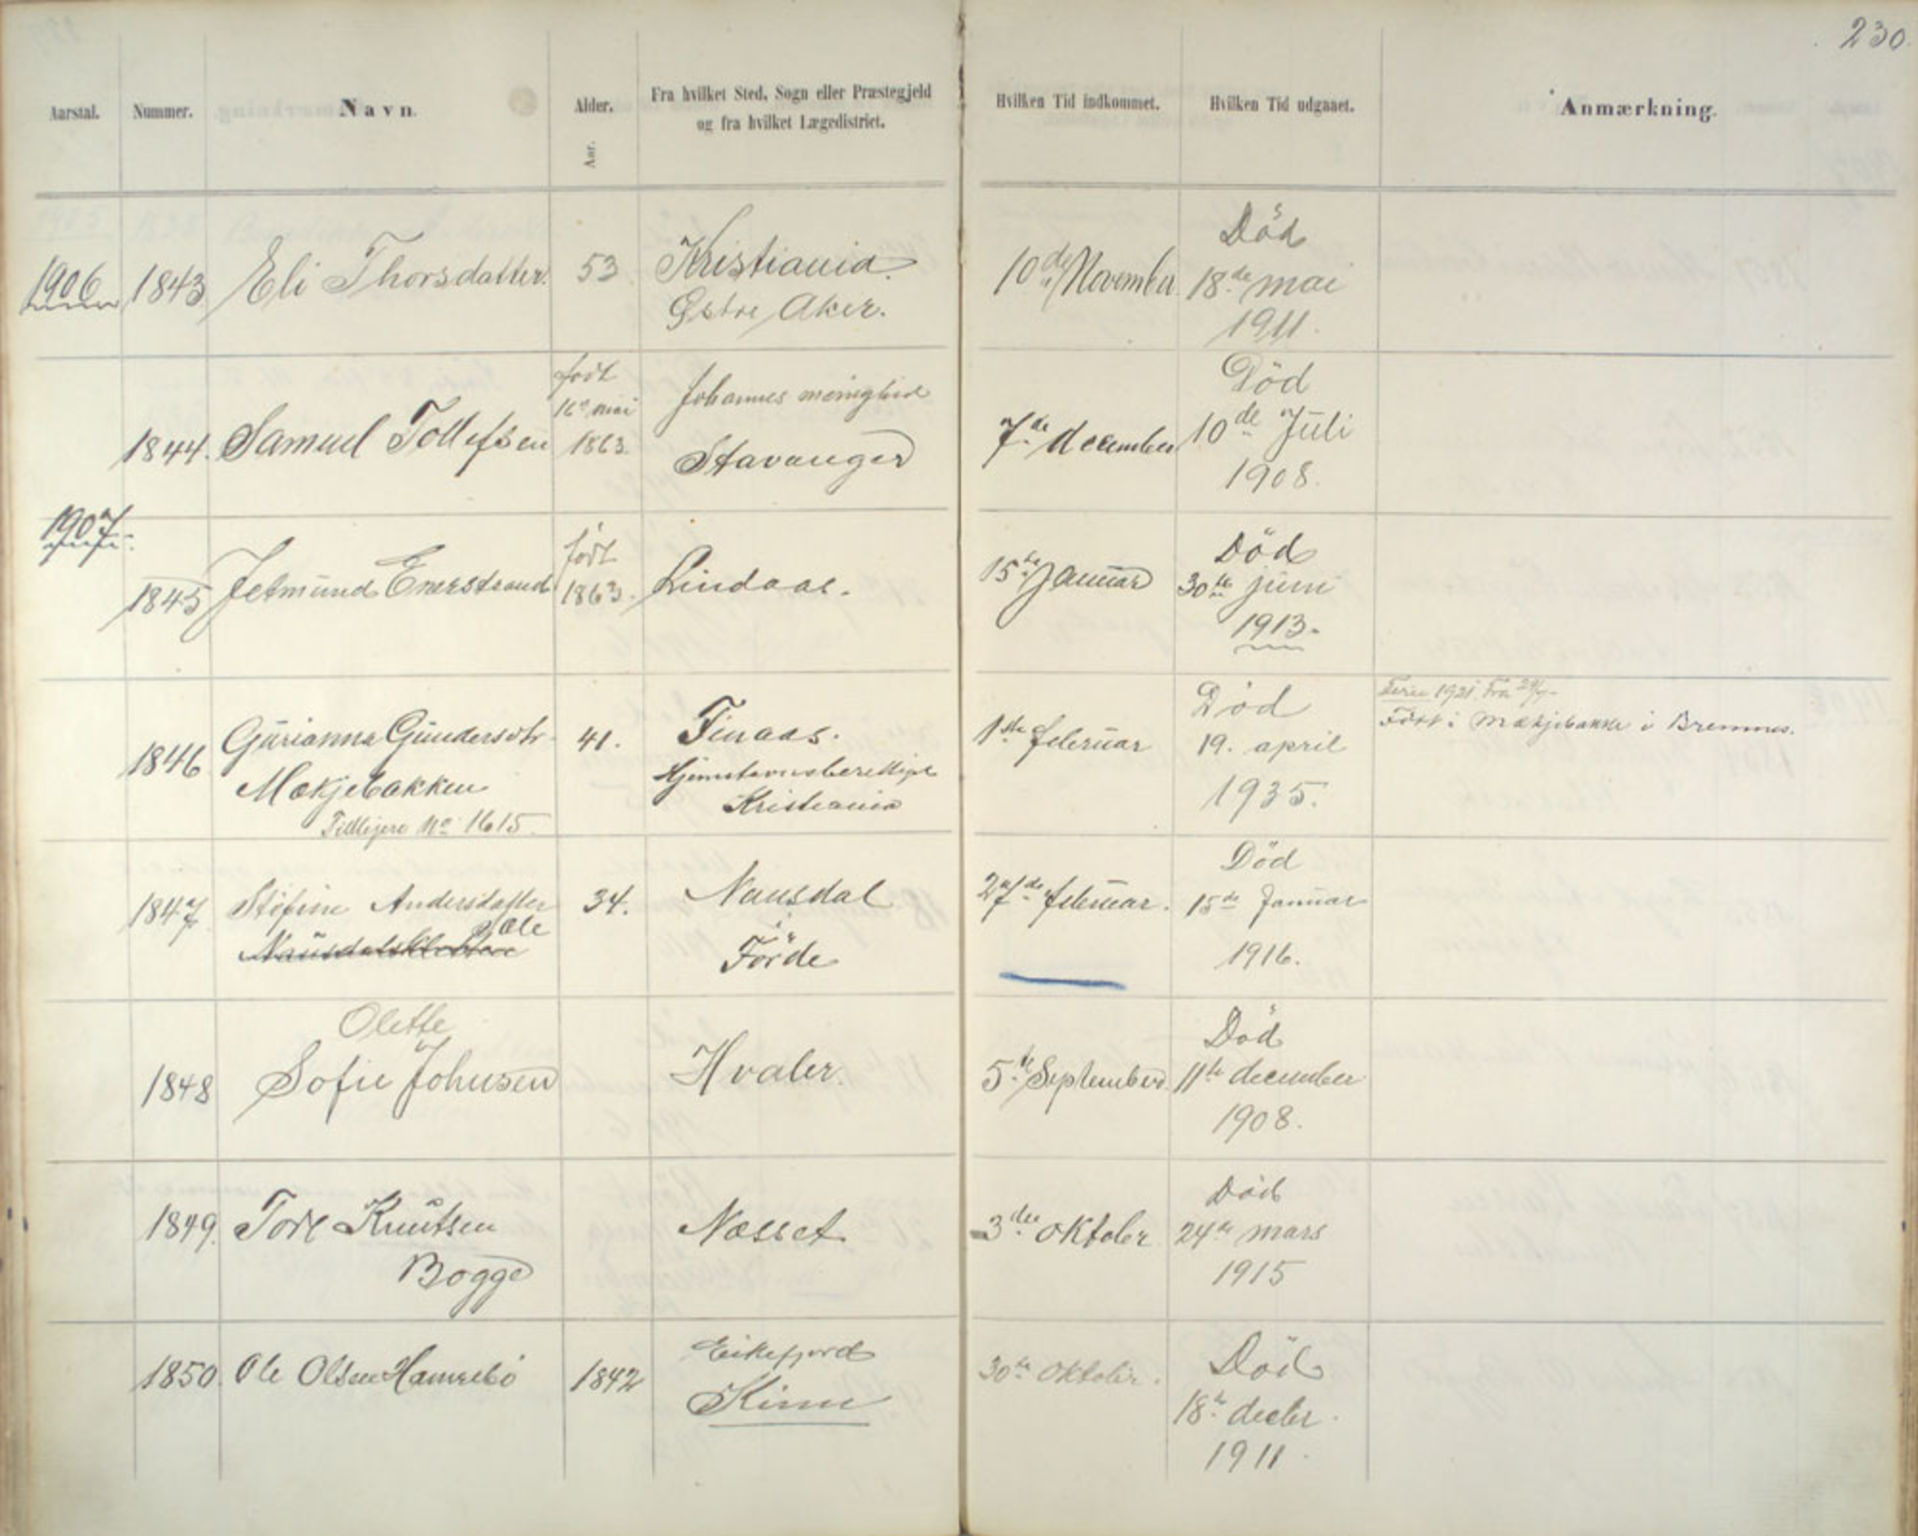 230.
Aarstal.
Nummer.
Navn.
Alder.
Aar.
Fra hvilket Sted, Sogn eller Præstegjeld
og fra hvilket Lægedistrict.
Hvilken Tid indkommet.
Hvilken Tid udgaaet.
Anmærkning.
1906 1843 Eli Thorsdatter. 53 Kristiania.
Østre Aker.
10de November
Död
18de mai
1911.
1844. Samuel Tollefsen
født
16de mai
1863
Johannes menighed
Stavanger
7de december
Död
10de Juli
1908.
1907.
1845 Jetmund Enerstrand
født
1863.
Lindaas.
15de Januar
Död
30te juni
1913.
1846 Gurianna Gundersdtr.
Mækjebakken
Tidligere No 1615.
41.
Finaas.
Hjemstavnsberettiget
Kristiania
1ste februar
Död
19. april
1935.
Ferie 1921 Fra
Født i Mækjebakke i Bremnes.
1847 Stefine Andersdatter
Sæle
34.
Nausdal
i
Förde
27de februar.
Död
15de Januar
1916.
1848
Olette
Sofie Johnsen
Hvaler.
5te September
Död
11te december
1908.
1849. Tore Knutsen
Bogge
Næsset
3die oktober
Död
24de mars
1915
1850. Ole Olsen Hamrebö 1842
Eikefjord
Kinn
30te oktober.
Död
18de decbr.
1911.